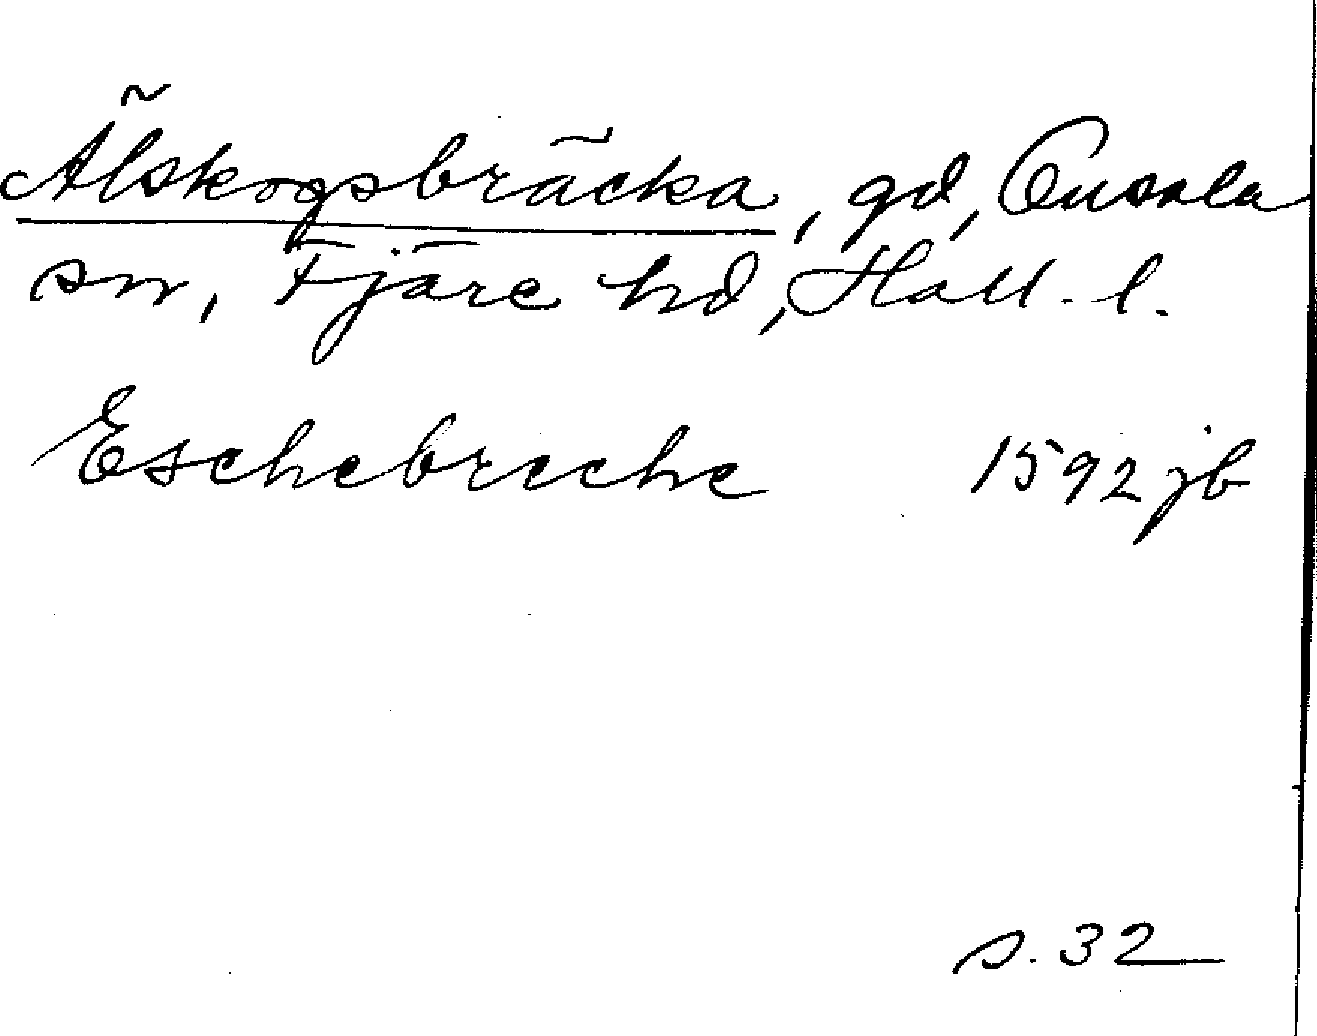 Älskogsbräcka, gd, Onsala
sn, Fjäre hd, Hall. l.
Eschebreche 1592 jb
s. 32